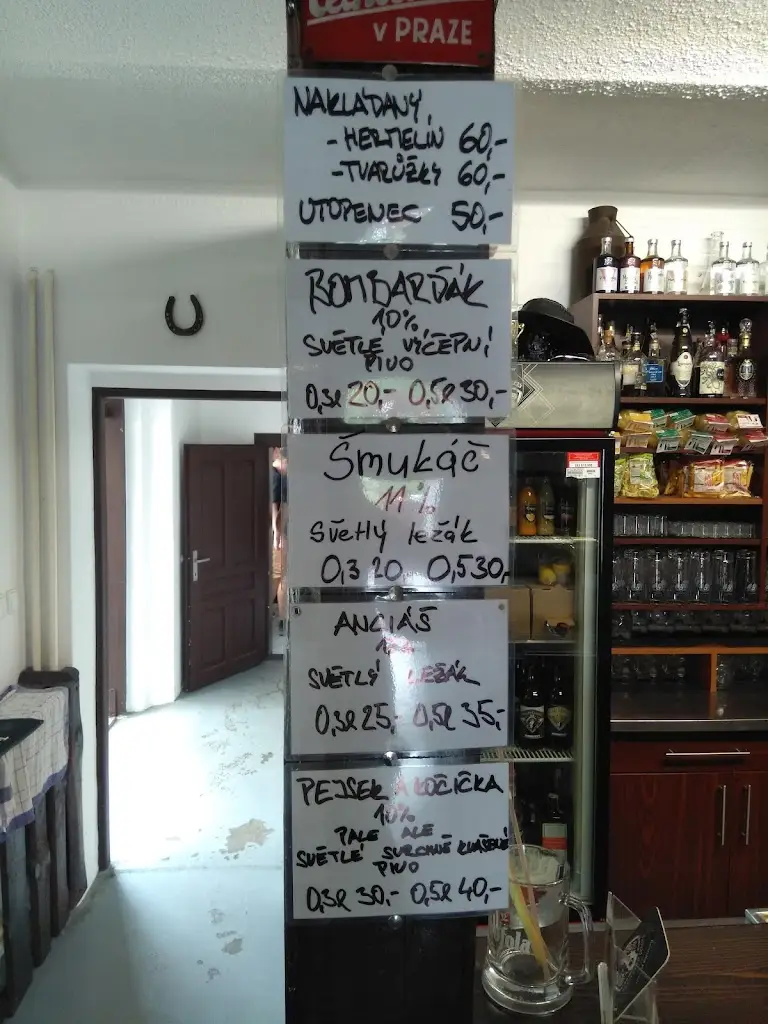 v PRAZE
NAKLÁDANÝ,
- HERMELÍN 60,-
- TVARŮŽKY 60,-
UTOPENEC 50,-
BOMBARĎÁK
10%
SVĚTLÉ VÝČEPNÍ
PIVO
0,3l 20,- 0,5l 30,-
Šmukáč
11%
Světlý ležák
0,3 20, 0,5 30,-
ANCIÁŠ
SVĚTLÝ LEŽÁK
0,3l 25,- 0,5l 35,-
PEJSEK A KOČIČKA
10%
PALE ALE
SVĚTLÉ SVRCHNĚ KVAŠENÉ
PIVO
0,3l 30,- 0,5l 40,-